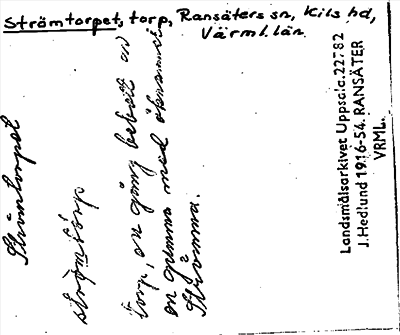 Strömtorpet, torp, Ransäters sn, Kils hd,
Värml. län.
Strömtorpet
strömtårp
torp, en gång bebott av
en gumma med öknamnet
Strömma.
Landsmålsarkivet Uppsala. 22782
J. Hedlund 1916-54. RANSÄTER
VRML.